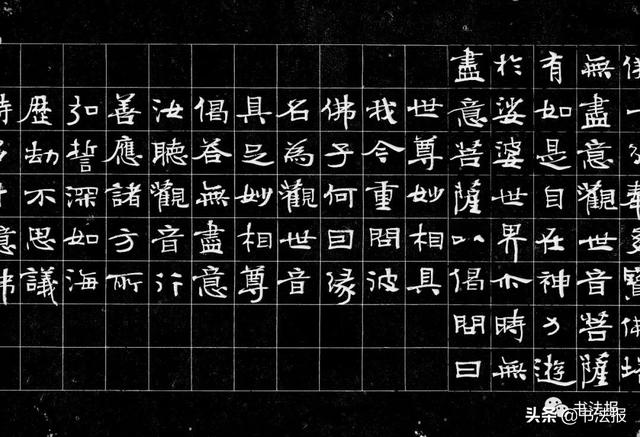 佛一分奉多寶佛塔
無盡意觀世音菩薩
有如是自在神力遊
於娑婆世界尒時無
盡意菩薩以偈問曰
世尊妙相具
我今重問彼
佛子何因緣
名為觀世音
具足妙相尊
偈答無盡意
汝聽觀音行
善應諸方所
弘誓深如海
歷劫不思議
书法报
头条@书法报